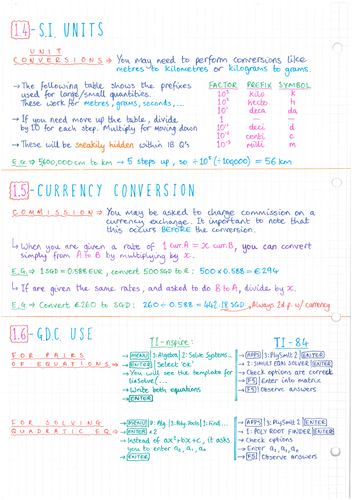 1.4 - S.I. UNITS
UNIT
CONVERSIONS → You may need to perform conversions like
metres to kilometres or kilograms to grams.
→ The following table shows the prefixes
used for large/small quantities.
These work for metres, grams, seconds,...
FACTOR PREFIX SYMBOL
10³ kilo k
10² hecto h
10¹ deca da
1 — —
10⁻¹ deci d
10⁻² centi c
10⁻³ milli m
→ If you need move up the table, divide
by 10 for each step. Multiply for moving down
→ These will be sneakily hidden within IB Qs
E.G. → 5600,000 cm to km → 5 steps up, so ÷10⁵ (÷100,000) = 56 km
1.5 - CURRENCY CONVERSION
COMMISSION → You may be asked to charge commission on a
currency exchange. It important to note that
this occurs BEFORE the conversion.
↳ When you are given a rate of 1 curr.A = x curr.B, you can convert
simply from A to B by multiplying by x.
E.G. → 1 SGD = 0.588 EUR, convert 500 SGD to €: 500 × 0.588 = €294
↳ If are given the same rates, and asked to do B to A, divide by x.
E.G. → Convert €260 to SGD: 260 ÷ 0.588 = 442.18 SGD Always 2d.p. w/ currency
1.6 - G.D.C. USE
TI-nspire: TI-84
FOR PAIRS
OF EQUATIONS →
→ MENU 3: Algebra 2: Solve Systems...
→ ENTER Select 'OK'
→ You will see the template for
linSolve(...
→ Write both equations
→ ENTER
→ APPS : PlySmlt 2 ENTER
→ 2: SIMULT EQN SOLVER ENTER
→ Check options are correct
→ F5 Enter into matrix
→ F5 Observe answers
FOR SOLVING
QUADRATIC EQ →
→ MENU 3: Alg. 3: Poly. Tools 1: Find...
→ ENTER × 2
→ Instead of ax²+bx+c, it asks
you to enter a₂, a₁, a₀
→ ENTER
→ APPS : PlySmlt 2 ENTER
→ 1: POLY ROOT FINDER ENTER
→ Check options
→ Enter a₂, a₁, a₀
→ F5 Observe answers